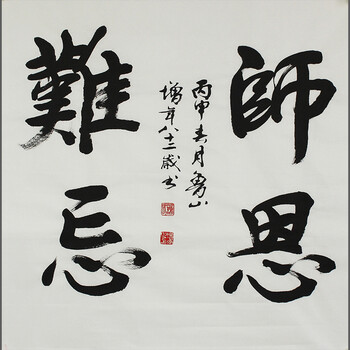 師恩
難忘
丙申春月魯山
增年八十二歲书